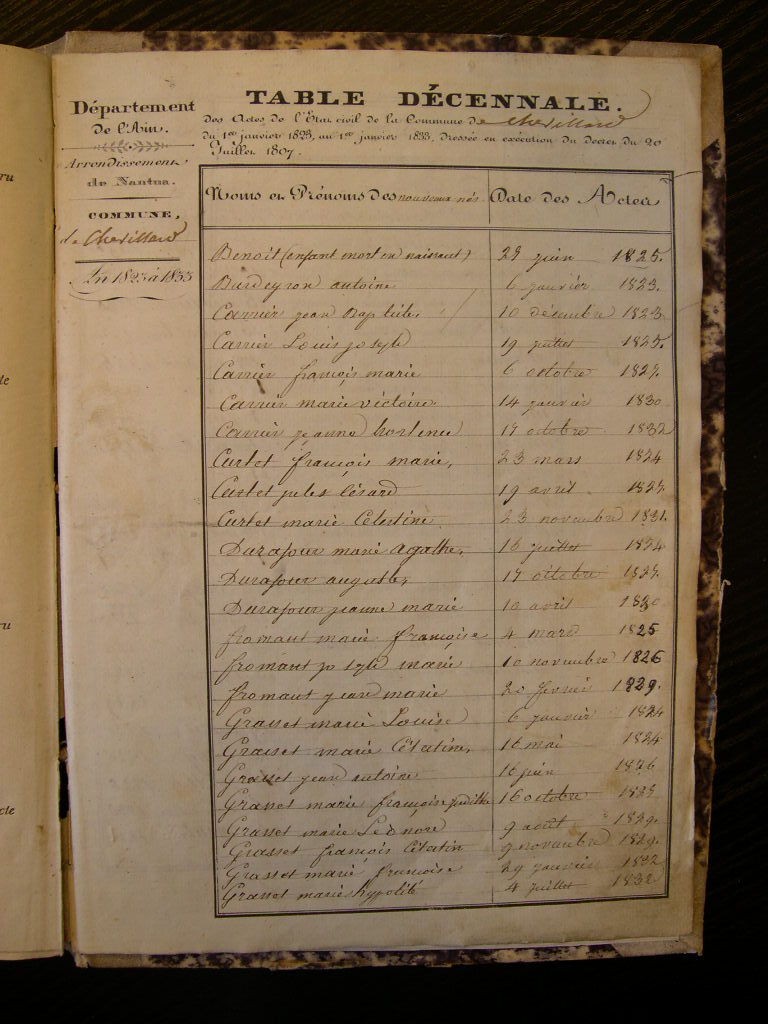 Département
de l'Ain.
Arrondissement
de Nantua.
COMMUNE,
de Chevillard
An 1823 à 1833
TABLE DÉCENNALE.
des Actes de l'État civil de la Commune de Chevillard
du 1er janvier 1823, au 1er janvier 1833, dressée en exécution du Décret du 20
Juillet 1807.
Noms et Prénoms des nouveaux nés Date des Actes
Benoit (enfant mort en naissant) juin 1825.
antoine 6 janvier 1823.
Carrier jean Baptiste 10 décembre 1823
Carrier Louis joseph 19 juillet 1825.
Carrier françois marie 6 octobre 1827.
Carrier marie victoire 14 janvier 1830
Carrier jeanne hortence 17 octobre 1832
Curtet françois marie, 23 mars 1824
Curtet jules Césard 19 avril 1827.
Curtet marie Célestine 23 novembre 1831.
Durafour marie agathe, 16 juillet 1824
Durafour auguste, 17 octobre 1827.
Durafour jeanne marie 10 avril 1830
fromant marie françoise 4 mars 1825
fromant joseph marie 10 novembre 1826
fromant jean marie 20 février 1829.
Grasset marie Louise 6 janvier 1824
Grasset marie Célestine, 16 mai 1824
Grasset jean antoine 16 juin 1826
Grasset marie françoise judithe 16 octobre 1827
Grasset marie Léonore 9 août 1829.
Grasset françois Célestin 9 novembre 1829.
Grasset marie françoise 29 janvier 1832
Grasset marie hypolite 4 juillet 1832